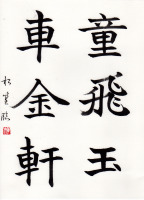 童飛玉
車金軒